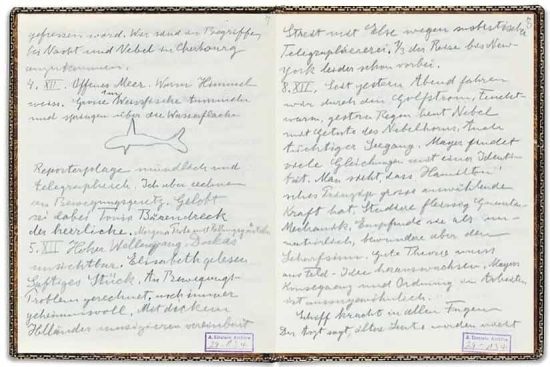 gefressen ward. Wir sind im Begriffe
bei Nacht und Nebel in Cherbourg
anzukommen.
4. XII. Offenes Meer. Warm Himmel
weiss. Grosse Wallfische tummeln
und springen über die Wasserfläche
Reporterplage mündlich und
telegraphisch. Ich aber rechnen
am Bewegungsgesetz. Gelobt
sei dabei Toni's Bärendreck
der herrliche.
5. XII Hoher Wellengang. Dockas
unsichtbar. Elisabeth gelesen
Saftiges Stück. An Bewegungs-
Problem gerechnet, noch immer
geheimnisvoll. Mit dickem
Holländer musizieren vereinbart
5
Streit mit Else wegen
Telegraphiererei. 1/2 der Reise bis New-
york leider schon vorbei.
8. XII. Seit gestern Abend fahren
wir durch den Golfstrom, feucht-
warm, gestern Regen heut Nebel
mit Getute des Nebelhorns. Auch
tüchtiger Seegang. Mayer findet
viele Gleichungen mit einer Identi-
tät. Man sieht, dass Hamilton'-
sches Prinzip grosse auswählende
Kraft hat. Studiere fleissig Quanten-
Mechanik. Empfinde sie als un-
natürlich, bewundere aber den
Scharfsinn. Gute Theorie muss
aus Feld-Idee herauswachsen. Mayers
Konsequenz und Ordnung im Arbeiten
ist aussergewöhnlich.
Schiff kracht in allen Fugen
Der Arzt sagt, ältere Leute würden nachts
A. Einstein Archive
29-134
A. Einstein Archive
29-134